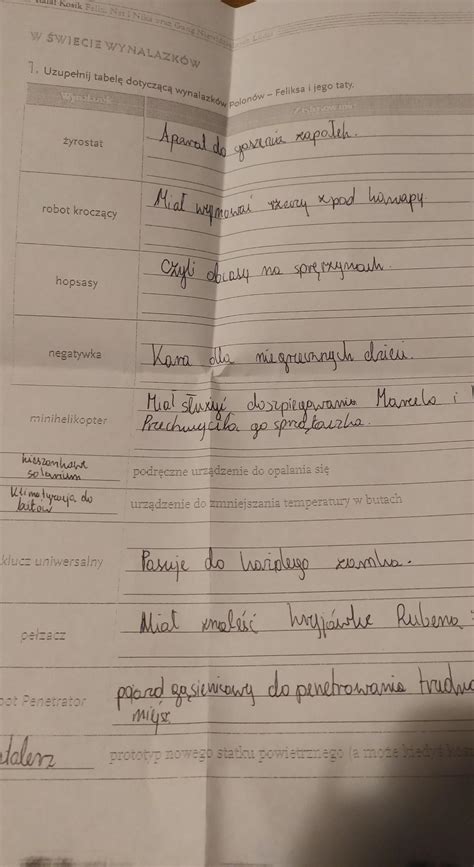 Rafał Kosik Felix, Net i Nika oraz Gang Niewidzialnych Ludzi
W ŚWIECIE WYNALAZKÓW
1. Uzupełnij tabelę dotyczącą wynalazków Polonów – Feliksa i jego taty.
Wynalazek
żyrostat
Aparat do gaszenia zapałek.
robot kroczący
Miał wyjmować rzeczy zpod kanapy.
hopsasy
Czyli obcasy na sprężynach.
negatywka
Kara dla niegrzecznych dzieci.
minihelikopter
Miał służyć doszpiegowania Marcela i
Przechwyciła go sprzątaczka.
kieszonkowe
solarium
podręczne urządzenie do opalania się
Klimatyzacja do
butów
urządzenie do zmniejszania temperatury w butach
klucz uniwersalny
Pasuje do każdego zamka.
pełzacz
Miał znaleść kryjówkę Rubena
bot Penetrator
pojazd gąsienicowy do penetrowania trudno
miejsc
talerz
prototyp nowego statku powietrznego (a może kiedyś